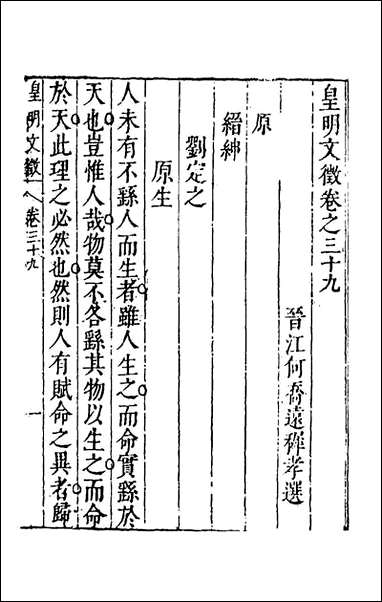 皇明文徵卷之三十九
晉江何喬遠穉孝選
原
縉紳
劉定之
原生
人未有不繇人而生者雖人生之而命實繇於
天也豈惟人哉物莫不各繇其物以生之而命
於天此理之必然也然則人有賦命之異者歸
皇明文徵 卷三十九 一